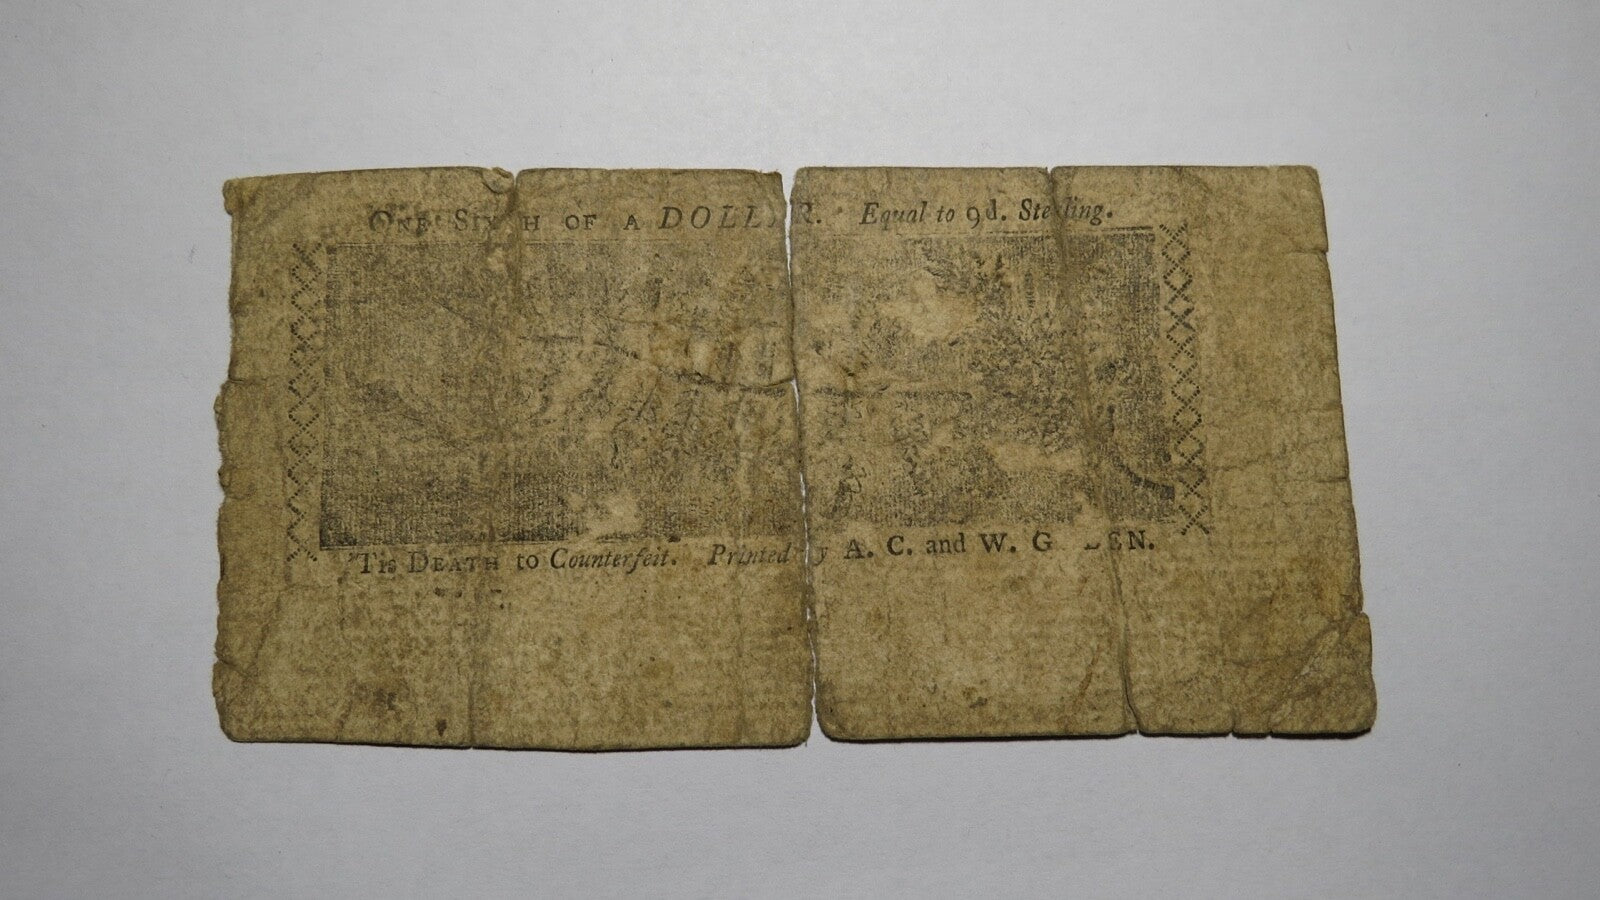 ONE SIXTH OF A DOLLAR. Equal to 9d. Sterling.
'Tis DEATH to Counterfeit. Printed by A. C. and W. G EN.